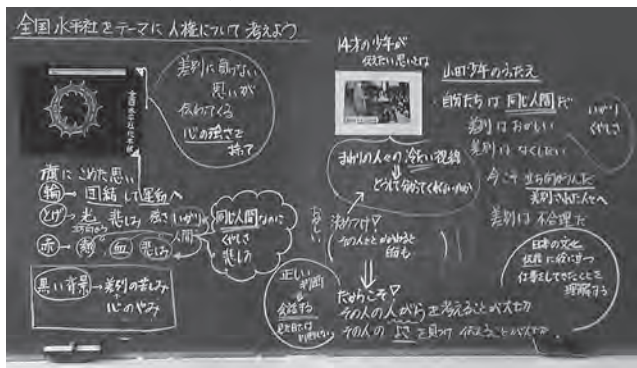 全国水平社をテーマに人権について考えよう
差別に負けない
思いが
伝わってくる
心の強さを
持って
旗にこめた思い
輪→団結して運動へ
とげ→光 悲しみ 強さ いかり
赤→熱 血 悲しみ
人間
黒い背景→差別の苦しみ
+
心のやみ
同じ人間なのに
くやしさ
悲しみ
14才の少年が
伝えたい思いとは
まわりの人々の冷たい視線
→どうして分かってくれないのか
決めつけ
正しい
判断
会話する
だからこそ
その人の人がらを考えることが大切
その人のよさを見つけ伝えることが大切
山田少年のうったえ
自分たちは同じ人間だ
差別はおかしい
差別はなくしたい
いかり
くやしさ
今こそ立ち向かうんだ
差別された人々へ
差別は不合理だ
日本の文化
伝統に役に立つ
仕事をしてきたことを
理解する